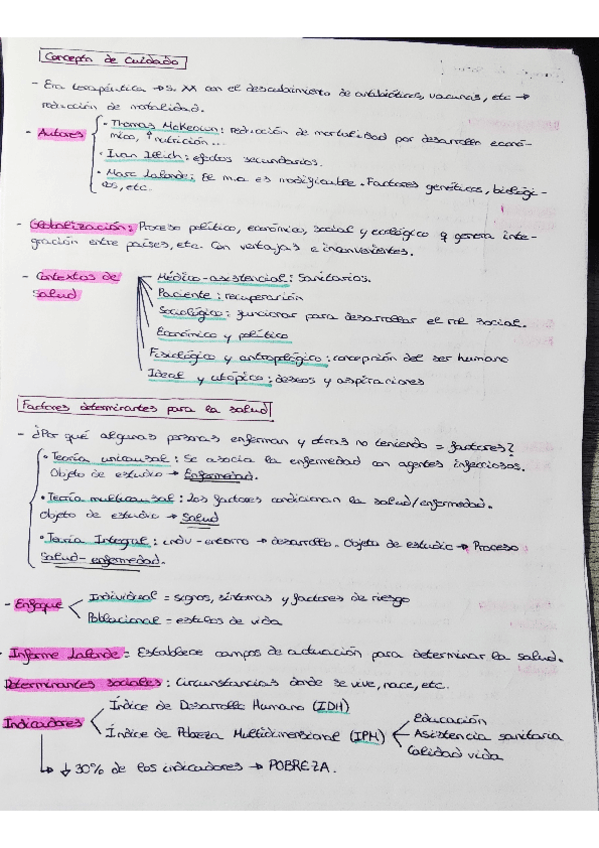 Concepto de cuidado
- Era terapéutica → s. XX con el descubrimiento de antibióticos, vacunas, etc →
reducción de mortalidad.
- Autores
• Thomas McKeown: reducción de mortalidad por desarrollo econó-
mico, ↑ nutrición...
• Ivan Illich: efectos secundarios.
• Marc Lalonde: El m.a es modificable. Factores genéticos, biológi-
cos, etc.
- Globalización: Proceso político, económico, social y ecológico q genera inte-
gración entre países, etc. Con ventajas e inconvenientes.
- Contextos de
salud
Médico-asistencial: Sanitarios.
Paciente: recuperación
Sociológico: funcionar para desarrollar el rol social.
Económico y político
Fisiológico y antropológico: concepción del ser humano
Ideal y utópico: deseos y aspiraciones
Factores determinantes para la salud
- ¿Por qué algunas personas enferman y otras no teniendo = factores?
• Teoría unicausal: Se asocia la enfermedad con agentes infecciosos.
Objeto de estudio → Enfermedad.
• Teoría multicausal: Los factores condicionan la salud/enfermedad.
Objeto de estudio → Salud
• Teoría Integral: indv-entorno → desarrollo. Objeto de estudio → Proceso
Salud-enfermedad.
- Enfoque
Individual = signos, síntomas y factores de riesgo
Poblacional = estilos de vida
- Informe Lalonde = Establece campos de actuación para determinar la salud.
Determinantes sociales: Circunstancias donde se vive, nace, etc.
Indicadores
Índice de Desarrollo Humano (IDH)
Índice de Pobreza Multidimensional (IPM)
Educación
Asistencia sanitaria
Calidad vida
↳ ↓ 30% de los indicadores → POBREZA.